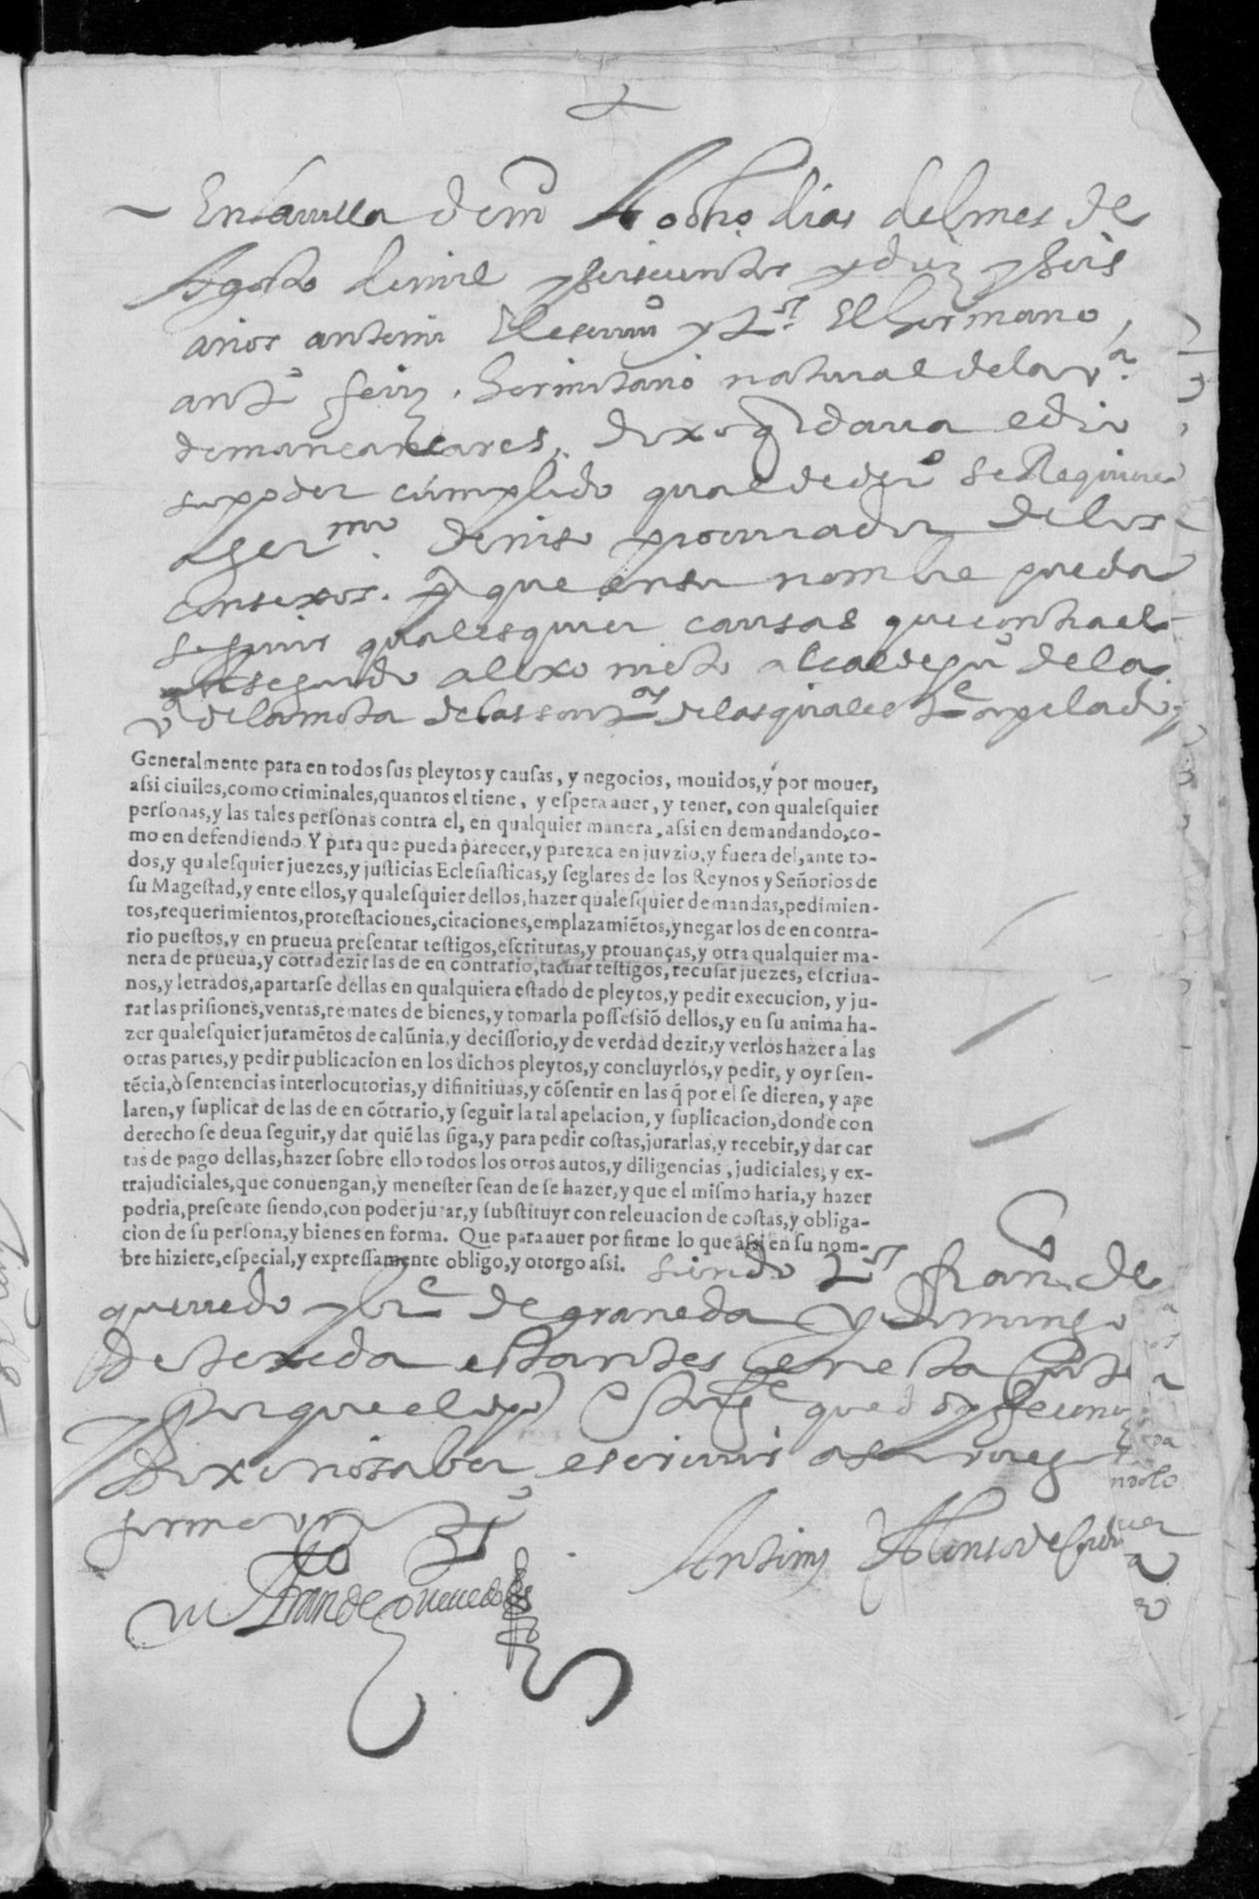 En la uilla de m^d A ocho dias del mes de
Agosto de mil y seiscientos y diez y seis
años ante mi El escriu^o y t^os El hermano
ant^o hermitano natural de la v^a
de mançanares, dixo q daua e dio
su poder cumplido qual de der^o se Requiere
a ger^mo procurador de los
consexos. p^a que en su nombre pueda
seguir qualesquier causas que contra el
a seguido alexo nieto alcalde de la
v^a de la mota de las sent^as de las quales t^e apelado y
Generalmente para en todos sus pleytos y causas, y negocios, mouidos, y por mouer,
assi ciuiles, como criminales, quantos el tiene, y espera auer, y tener, con qualesquier
personas, y las tales personas contra el, en qualquier manera, assi en demandando, co-
mo en defendiendo. Y para que pueda parecer, y parezca en juyzio, y fuera del, ante to-
dos, y qualesquier juezes, y justicias Eclesiasticas, y seglares de los Reynos y Señorios de
su Magestad, y ente ellos, y qualesquier dellos, hazer qualesquier demandas, pedimien-
tos, requerimientos, protestaciones, citaciones, emplazamiẽtos, y negar los de en contra-
rio puestos, y en prueua presentar testigos, escrituras, y prouanças, y otra qualquier ma-
nera de prueua, y cõtradezir las de en contrario, tachar testigos, recusar juezes, escriua-
nos, y letrados, apartarse dellas en qualquiera estado de pleytos, y pedir execucion, y ju-
rar las prisiones, ventas, remates de bienes, y tomar la possessiõ dellos, y en su anima ha-
zer qualesquier juramẽtos de calũnia, y decissorio, y de verdad dezir, y verlos hazer a las
otras partes, y pedir publicacion en los dichos pleytos, y concluyrlos, y pedir, y oyr sen-
tẽcia, ò sentencias interlocutorias, y difinitiuas, y cõsentir en las q̃ por el se dieren, y ape
laren, y suplicar de las de en cõtrario, y seguir la tal apelacion, y suplicacion, donde con
derecho se deua seguir, y dar quiẽ las siga, y para pedir costas, jurarlas, y recebir, y dar car
tas de pago dellas, hazer sobre ello todos los otros autos, y diligencias, judiciales, y ex-
trajudiciales, que conuengan, y menester sean de se hazer, y que el mismo haria, y hazer
podria, presente siendo, con poder jurar, y substituyr con releuacion de costas, y obliga-
cion de su persona, y bienes en forma. Que para auer por firme lo que assi en su nom-
bre hiziere, especial, y expressamente obligo, y otorgo assi. siendo t^os fran^co de
queuedo y de graneda y domingo
de texeda estantes en esta corte
y porque el que doy fe cono
dixo no saber escriuir a su ruego
firmo vn t^o
t^o
fran de queuedo
Ante mi Alonso de